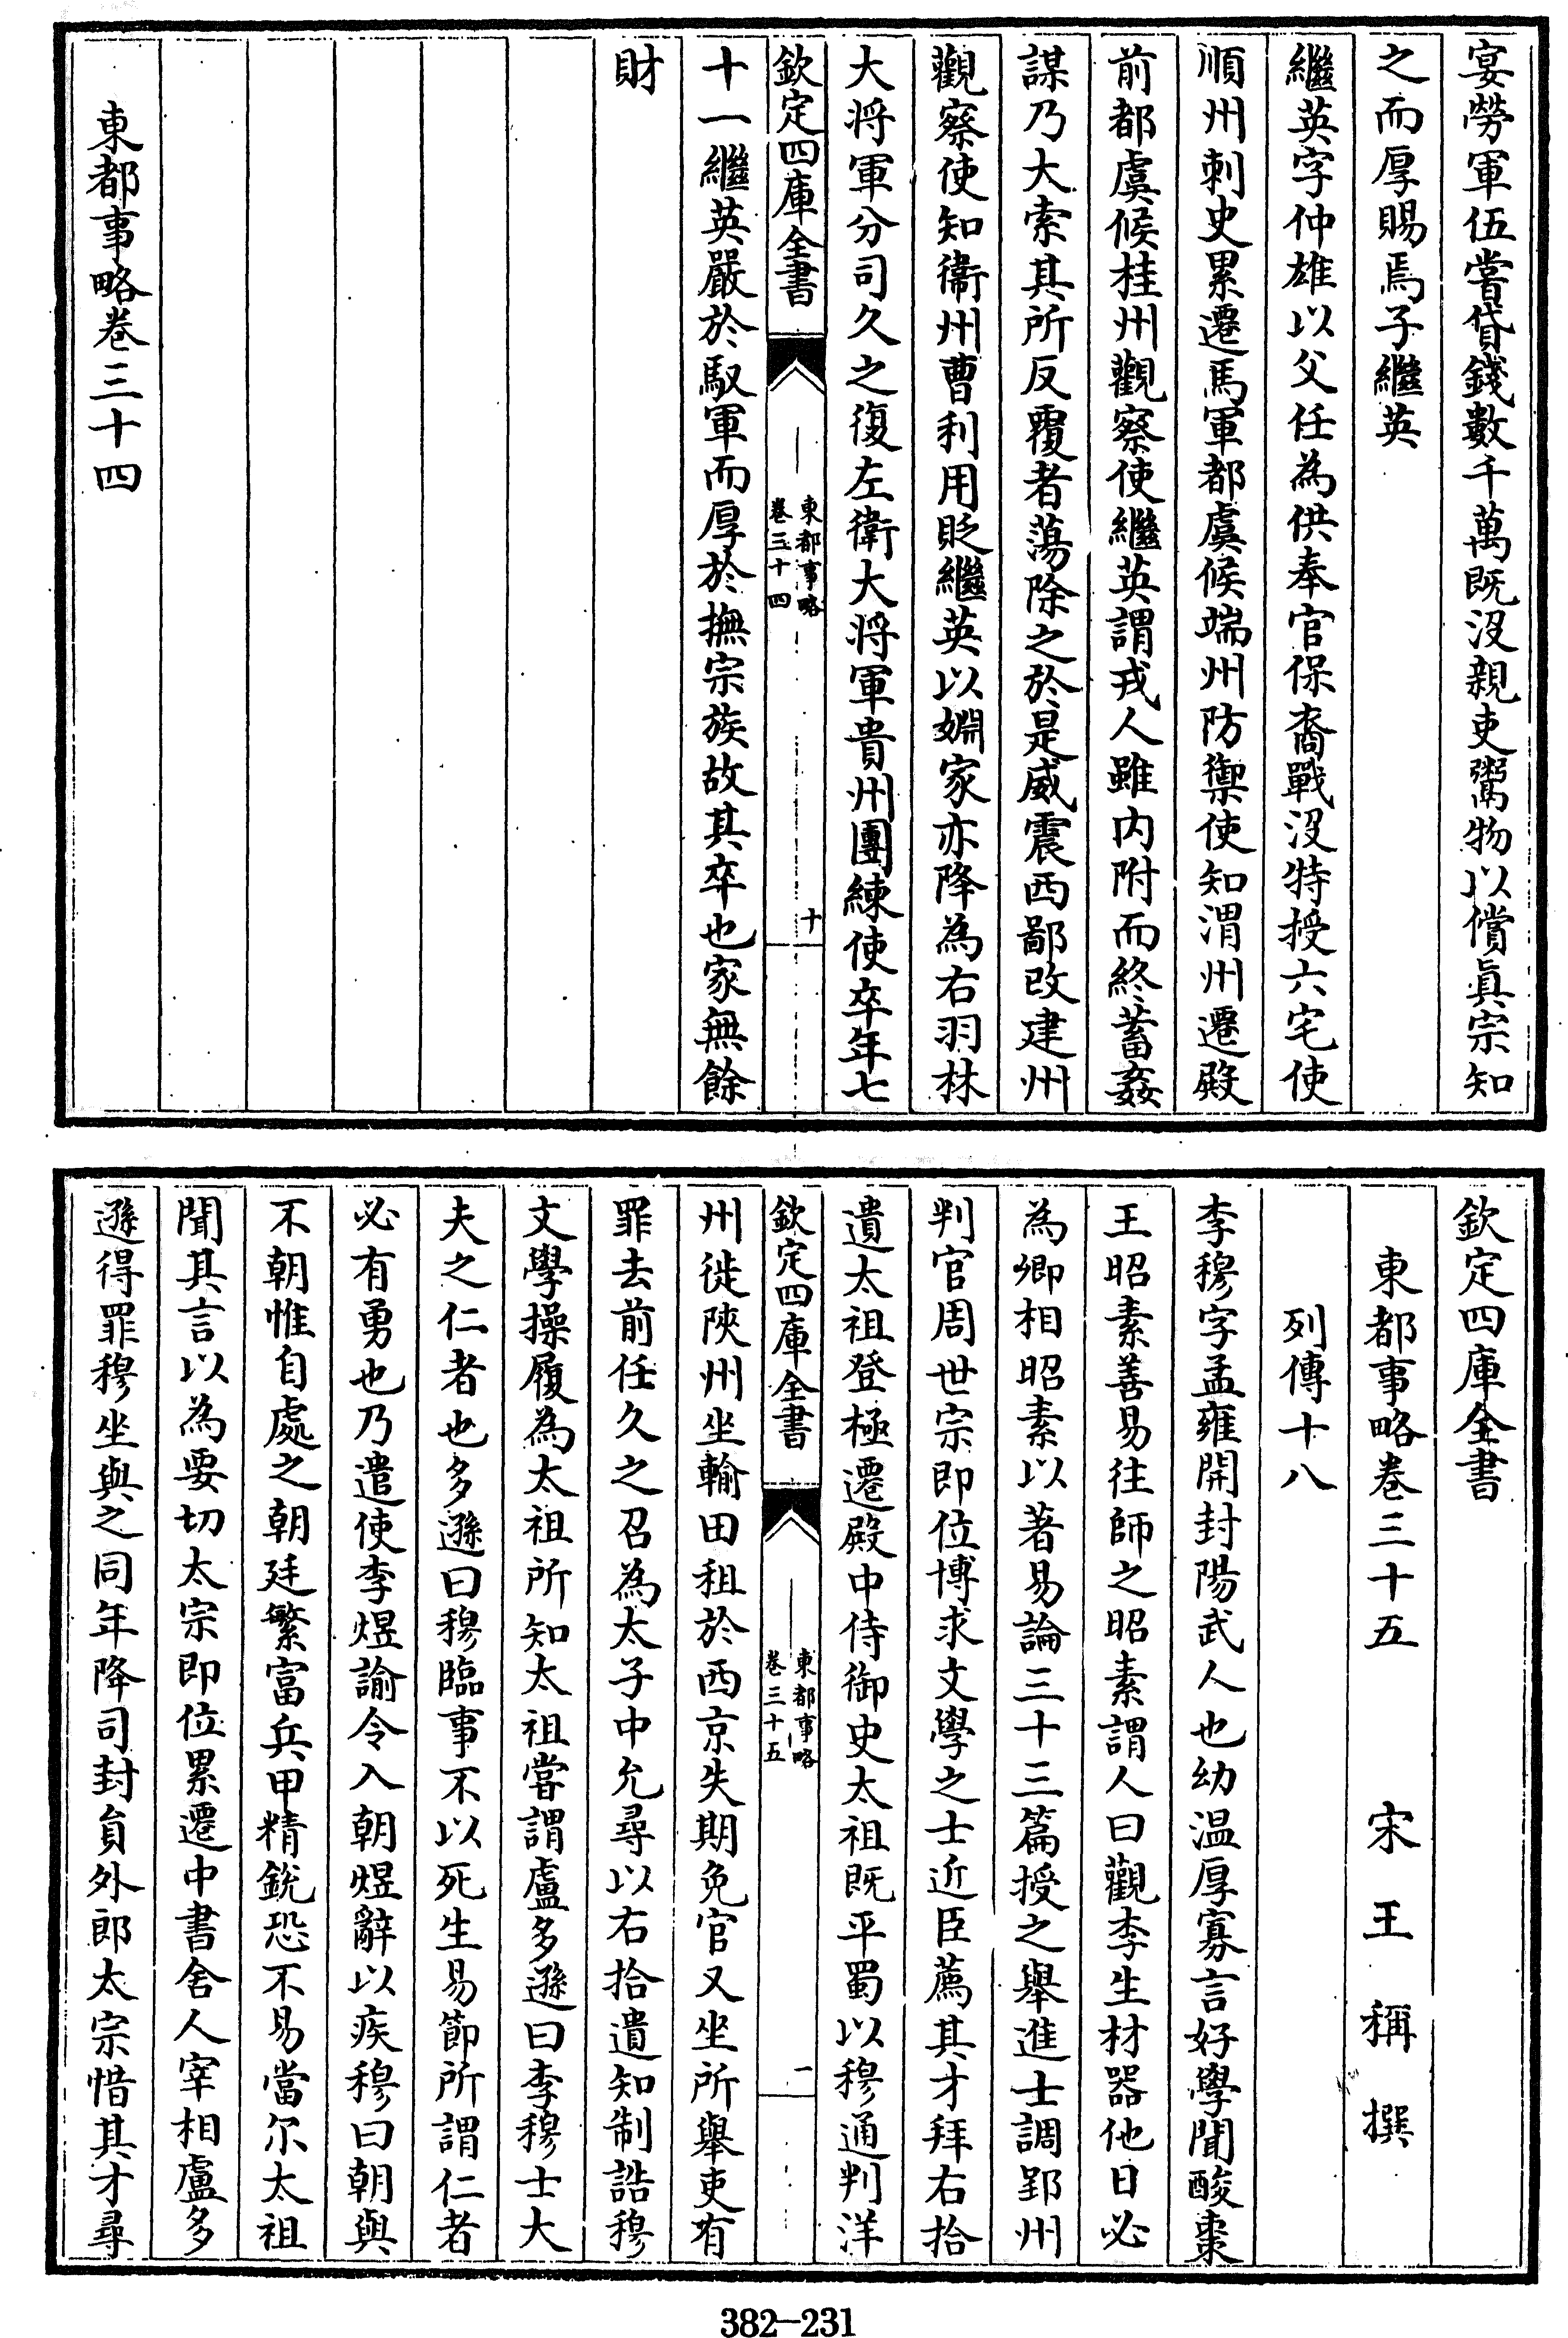 宴勞軍伍嘗貸錢數千萬既沒親吏鬻物以償真宗知
之而厚賜焉子繼英
繼英字仲雄以父任為供奉官保裔戰沒特授六宅使
順州刺史累遷馬軍都虞候端州防禦使知渭州遷殿
前都虞候桂州觀察使繼英謂戎人雖內附而終蓄姦
謀乃大索其所反覆者蕩除之於是威震西鄙改建州
觀察使知衞州曹利用貶繼英以婣家亦降為右羽林
大將軍分司久之復左衞大將軍貴州團練使卒年七
欽定四庫全書
東都事略
卷三十四
十
十一繼英嚴於馭軍而厚於撫宗族故其卒也家無餘
財
東都事略卷三十四
欽定四庫全書
東都事略卷三十五 宋 王 稱 撰
列傳十八
李穆字孟雍開封陽武人也幼温厚寡言好學聞酸棗
王昭素善易往師之昭素謂人曰觀李生材器他日必
為卿相昭素以著易論三十三篇授之舉進士調郢州
判官周世宗即位博求文學之士近臣薦其才拜右拾
遺太祖登極遷殿中侍御史太祖既平蜀以穆通判洋
欽定四庫全書
東都事略
卷三十五
一
州徙陝州坐輸田租於西京失期免官又坐所舉吏有
罪去前任久之召為太子中允尋以右拾遺知制誥穆
文學操履為太祖所知太祖嘗謂盧多遜曰李穆士大
夫之仁者也多遜曰穆臨事不以死生易節所謂仁者
必有勇也乃遣使李煜諭令入朝煜辭以疾穆曰朝與
不朝惟自處之朝廷繁富兵甲精銳恐不易當尔太祖
聞其言以為要切太宗即位累遷中書舍人宰相盧多
遜得罪穆坐與之同年降司封員外郎太宗惜其才尋
382-231